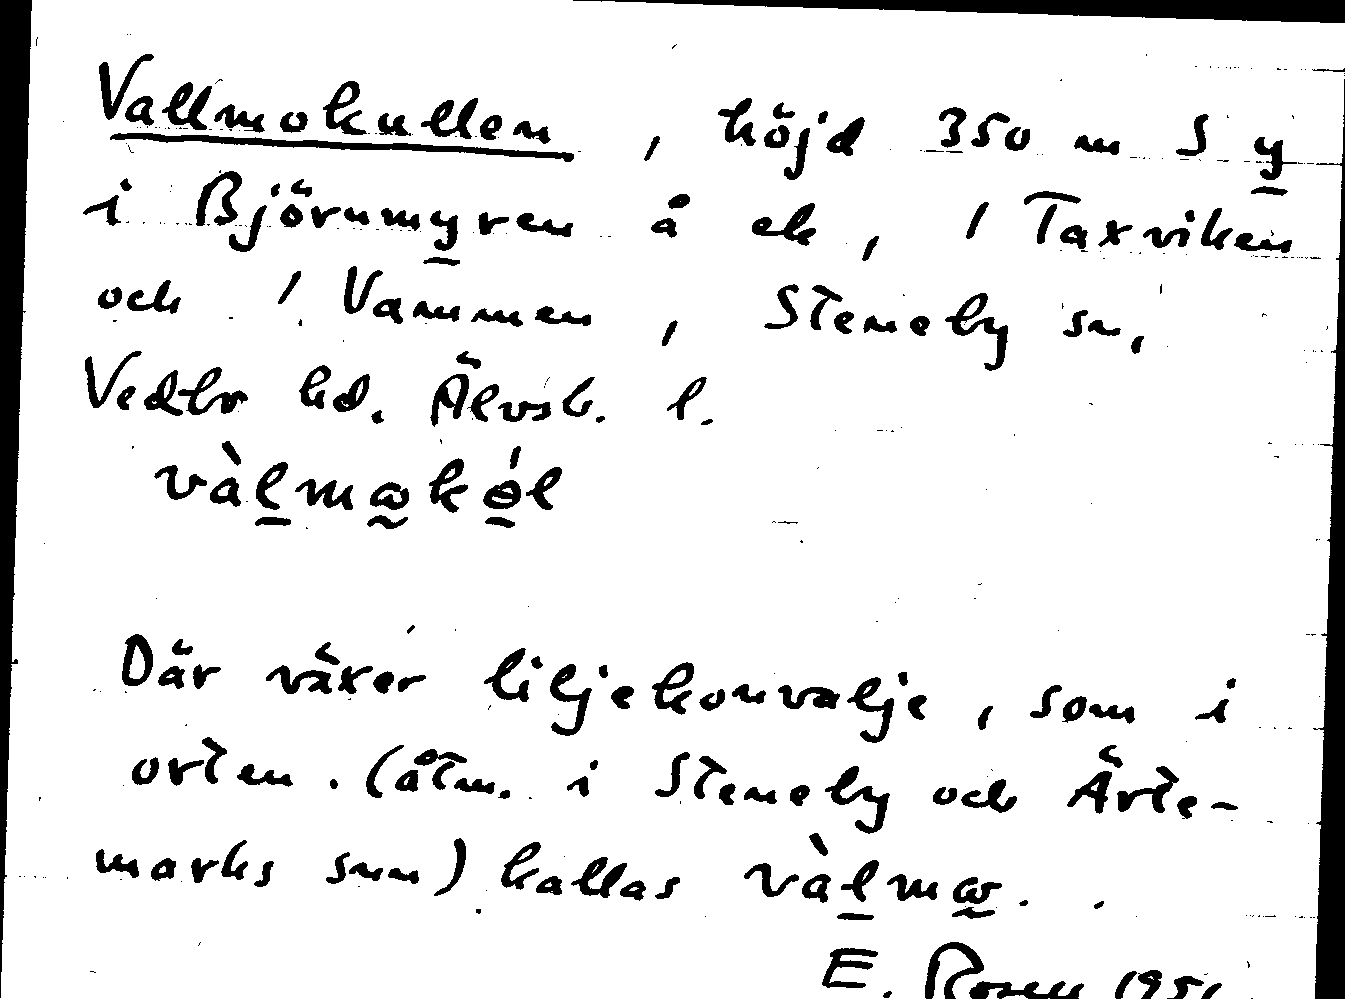 Vallmokullen, höjd 350 m S y
i Björnmyren å ek, / Taxviken
och / Vammen, Steneby sn,
Vedbo hd. Älvsb. l.
vàlmωkɵ́l
Där växer liljekonvalje, som i
orten. (åtm. i Steneby och Ärte-
marks snn) kallas vàlmω.
E. Rosell 1951